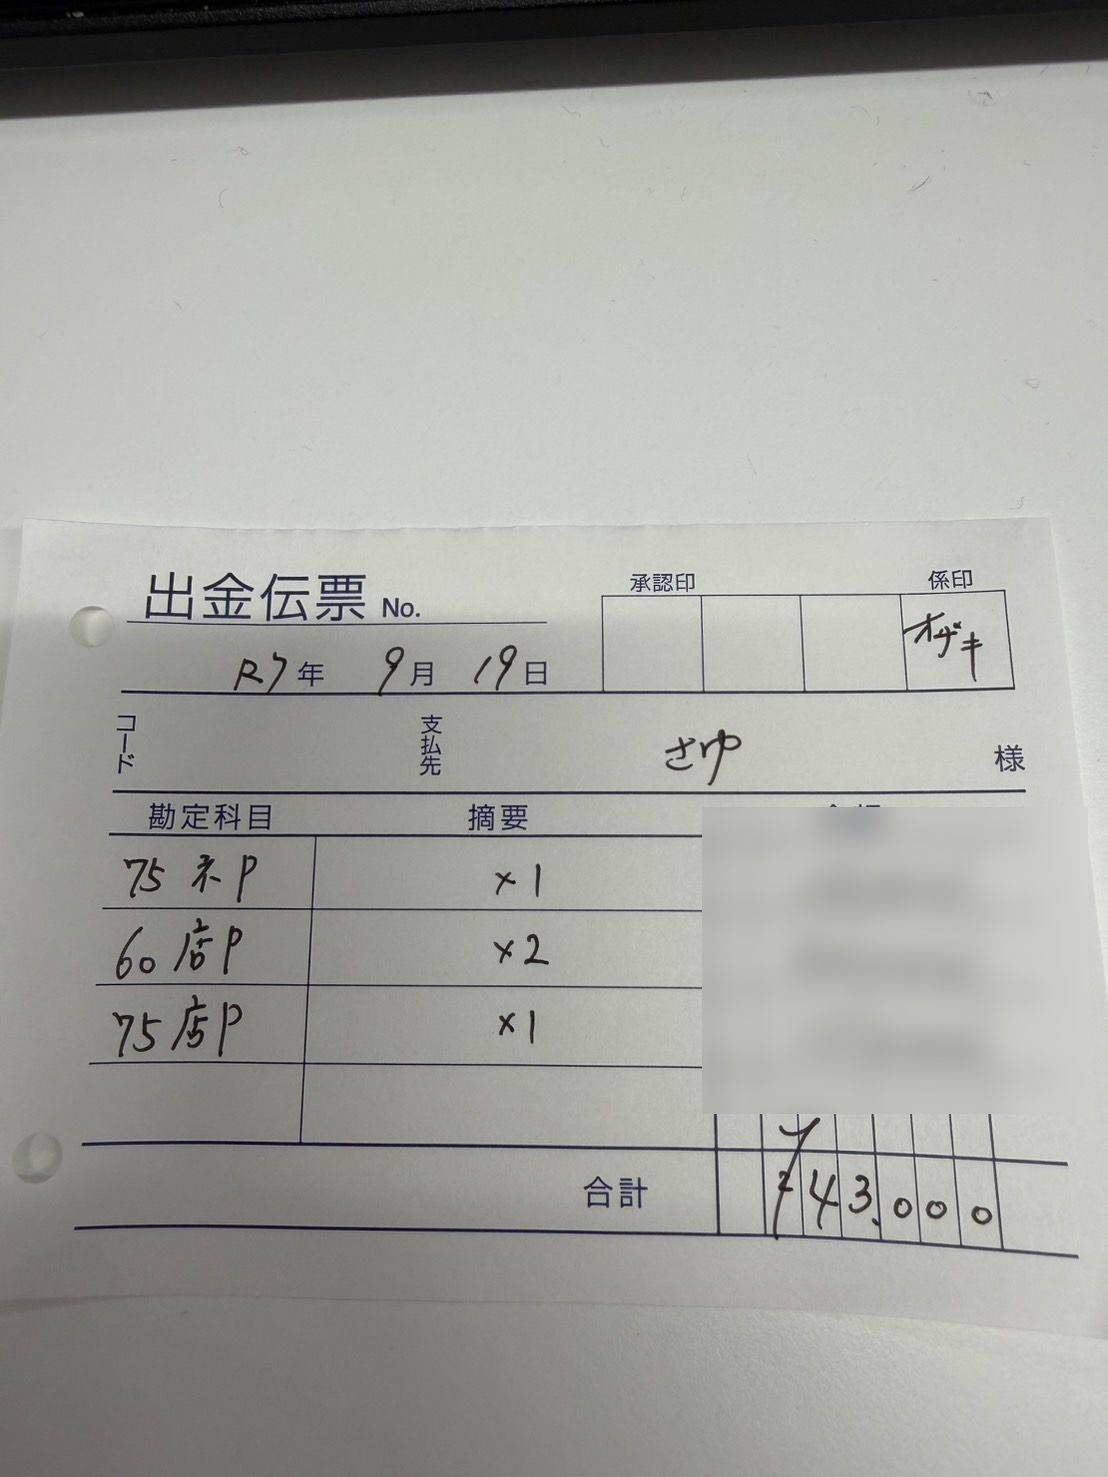 出金伝票 No.
承認印 係印
オザキ
R7年 9月 19日
コード 支払先 さゆ 様
勘定科目 摘要
75 ネP ×1
60 店P ×2
75 店P ×1
合計 ¥43,000